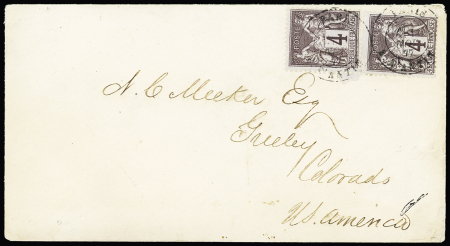 4 4
N. C. Meeker Esq
Greeley
Colorado
U.S. America